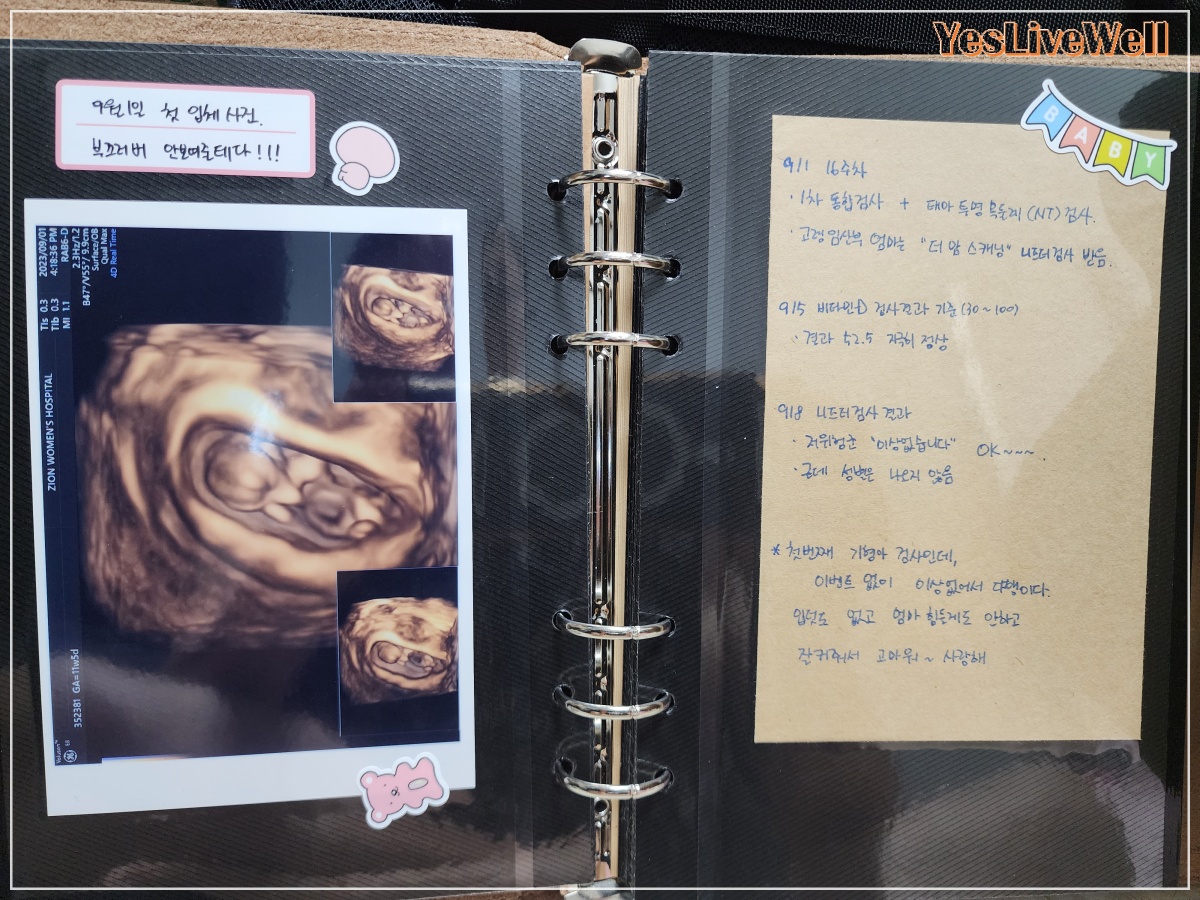 YesLiveWell
9월1일 첫 입체사진.
부끄러버 안보여줄테다!!!
2023/09/01
4:18:36 PM
RAB6-D
2.3Hz/1.2
B47°/V55°/ 9.9cm
Surface/OB
Qual Max
4D Real Time
TIs 0.3
TIb 0.3
MI 1.1
ZION WOMEN'S HOSPITAL
352381 GA=11w5d
Voluson™
E8
BABY
9/1 16주차
· 1차 통합검사 + 태아 투명 목둘레 (NT) 검사.
· 고령임산부 엄마는 "더 맘 스캐닝" 니프터검사 받음.
9/5 비타민D 검사결과 기준 (30~100)
· 결과 52.5 지극히 정상
9/8 니프터검사 결과
· 저위험군 "이상없습니다" OK~~~.
· 근데 성별은 나오지 않음
* 첫번째 기형아 검사인데,
이벤트 없이 이상없어서 다행이다.
입덧도 없고 엄마 힘들게도 안하고
잘커줘서 고마워~ 사랑해